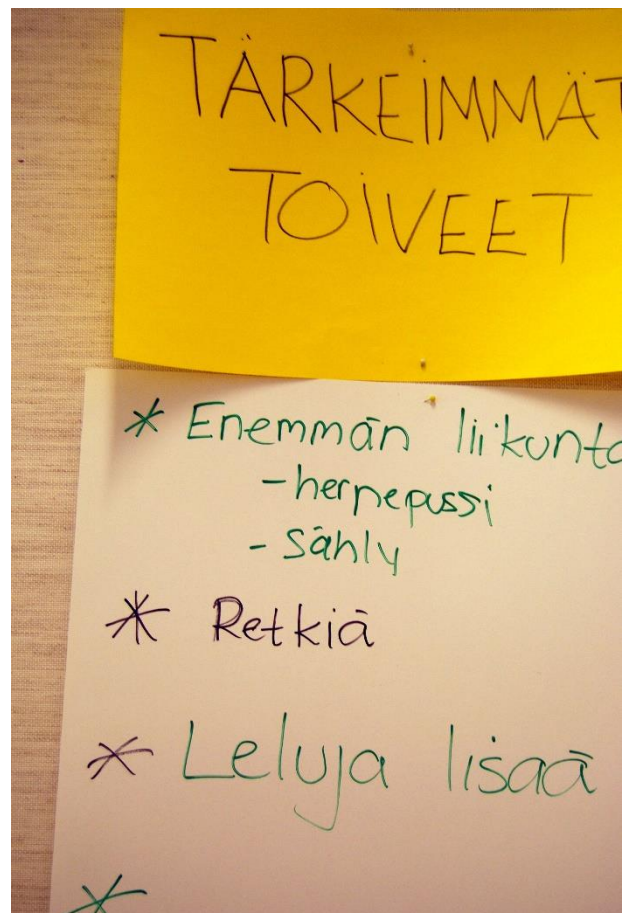 TÄRKEIMMÄT
TOIVEET
* Enemmän liikunta
- herpepussi
- Sähly
* Retkiä
* Leluja lisää
*